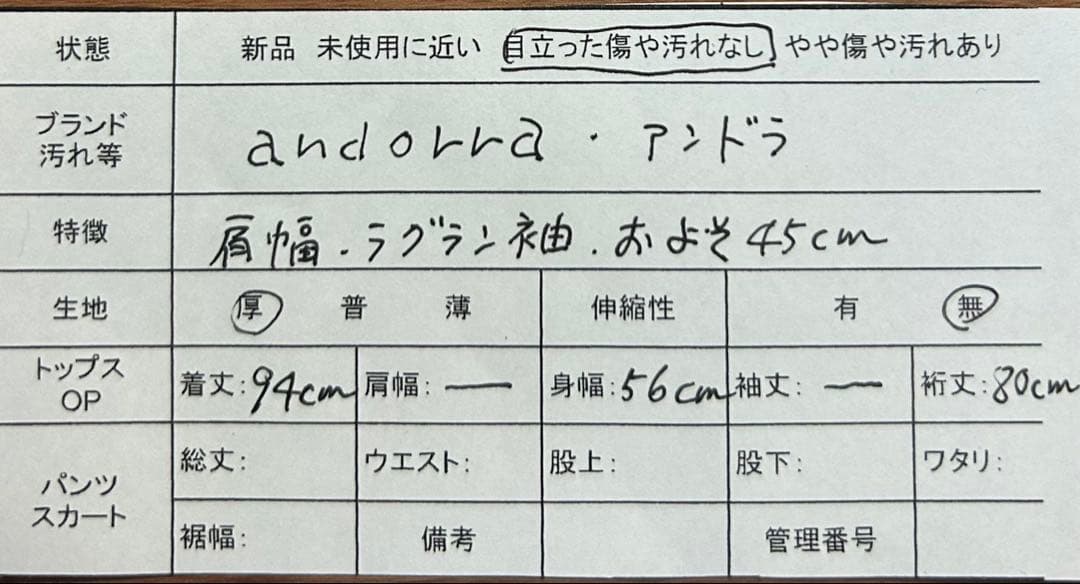 状態 新品 未使用に近い 目立った傷や汚れなし やや傷や汚れあり
ブランド
汚れ等 andorra・アンドラ
特徴 肩幅.ラグラン袖.およそ45cm
生地 厚 普 薄 伸縮性 有 無
トップス
OP 着丈:94cm 肩幅:ー 身幅:56cm 袖丈:ー 裄丈:80cm
パンツ
スカート 総丈: ウエスト: 股上: 股下: ワタリ:
裾幅: 備考 管理番号